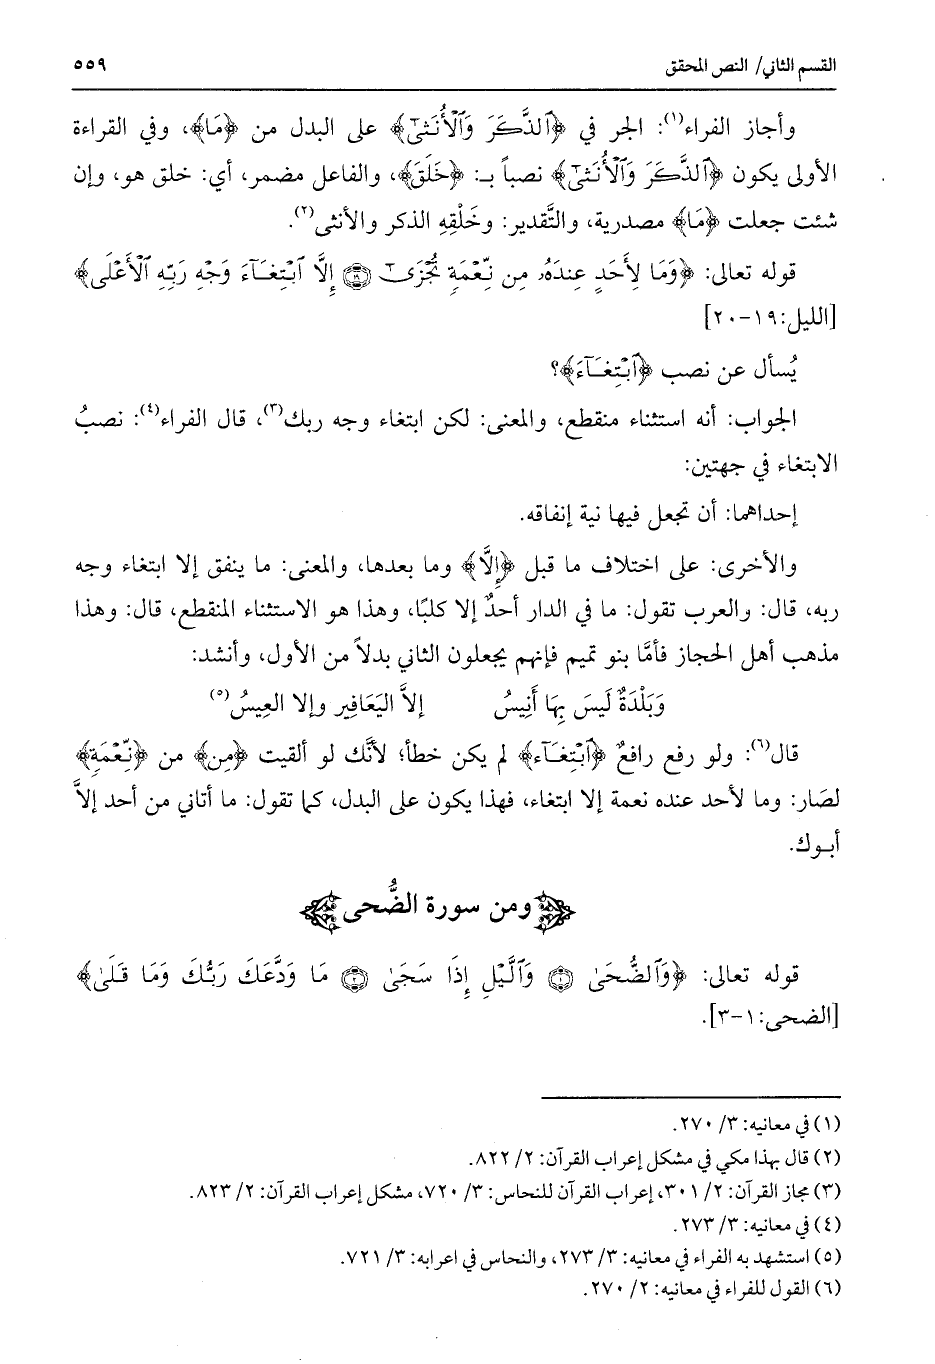 القسم الثاني/ النص المحقق ٥٥٩
وأجاز الفراء(١): الجر في ﴿ٱلذَّكَرَ وَٱلْأُنثَىٰٓ﴾ على البدل من ﴿مَا﴾، وفي القراءة
الأولى يكون ﴿ٱلذَّكَرَ وَٱلْأُنثَىٰٓ﴾ نصباً بـ: ﴿خَلَقَ﴾، والفاعل مضمر، أي: خلق هو، وإن
شئت جعلت ﴿مَا﴾ مصدرية، والتَّقدير: وخَلْقِهِ الذكر والأنثى(٢).
قوله تعالى: ﴿وَمَا لِأَحَدٍ عِندَهُۥ مِن نِّعْمَةٍ تُجْزَىٰٓ ۝١٩ إِلَّا ٱبْتِغَآءَ وَجْهِ رَبِّهِ ٱلْأَعْلَىٰ﴾
[الليل:١٩-٢٠]
يُسأل عن نصب ﴿ٱبْتِغَآءَ﴾؟
الجواب: أنه استثناء منقطع، والمعنى: لكن ابتغاء وجه ربك(٣)، قال الفراء(٤): نصبُ
الابتغاء في جهتين:
إحداهما: أن تجعل فيها نية إنفاقه.
والأخرى: على اختلاف ما قبل ﴿إِلَّا﴾ وما بعدها، والمعنى: ما ينفق إلا ابتغاء وجه
ربه، قال: والعرب تقول: ما في الدار أحدٌ إلا كلبًا، وهذا هو الاستثناء المنقطع، قال: وهذا
مذهب أهل الحجاز فأمَّا بنو تميم فإنهم يجعلون الثاني بدلاً من الأول، وأنشد:
وَبَلْدَةٌ لَيسَ بِهَا أَنِيسُ إلاَّ اليَعَافِير وإلا العِيسُ(٥)
قال(٦): ولو رفع رافعٌ ﴿ٱبْتِغَآءَ﴾ لم يكن خطأ؛ لأنَّك لو ألقيت ﴿مِن﴾ من ﴿نِّعْمَةٍ﴾
لصَار: وما لأحد عنده نعمة إلا ابتغاء، فهذا يكون على البدل، كما تقول: ما أتاني من أحد إلاَّ
أبوك.
ومن سورة الضُّحى
قوله تعالى: ﴿وَٱلضُّحَىٰ ۝١ وَٱلَّيْلِ إِذَا سَجَىٰ ۝٢ مَا وَدَّعَكَ رَبُّكَ وَمَا قَلَىٰ﴾
[الضحى:١-٣].
(١) في معانيه: ٣/ ٢٧٠.
(٢) قال بهذا مكي في مشكل إعراب القرآن: ٢/ ٨٢٢.
(٣) مجاز القرآن: ٢/ ٣٠١، إعراب القرآن للنحاس: ٣/ ٧٢٠، مشكل إعراب القرآن: ٢/ ٨٢٣.
(٤) في معانيه: ٣/ ٢٧٣.
(٥) استشهد به الفراء في معانيه: ٣/ ٢٧٣، والنحاس في اعرابه: ٣/ ٧٢١.
(٦) القول للفراء في معانيه: ٢/ ٢٧٠.